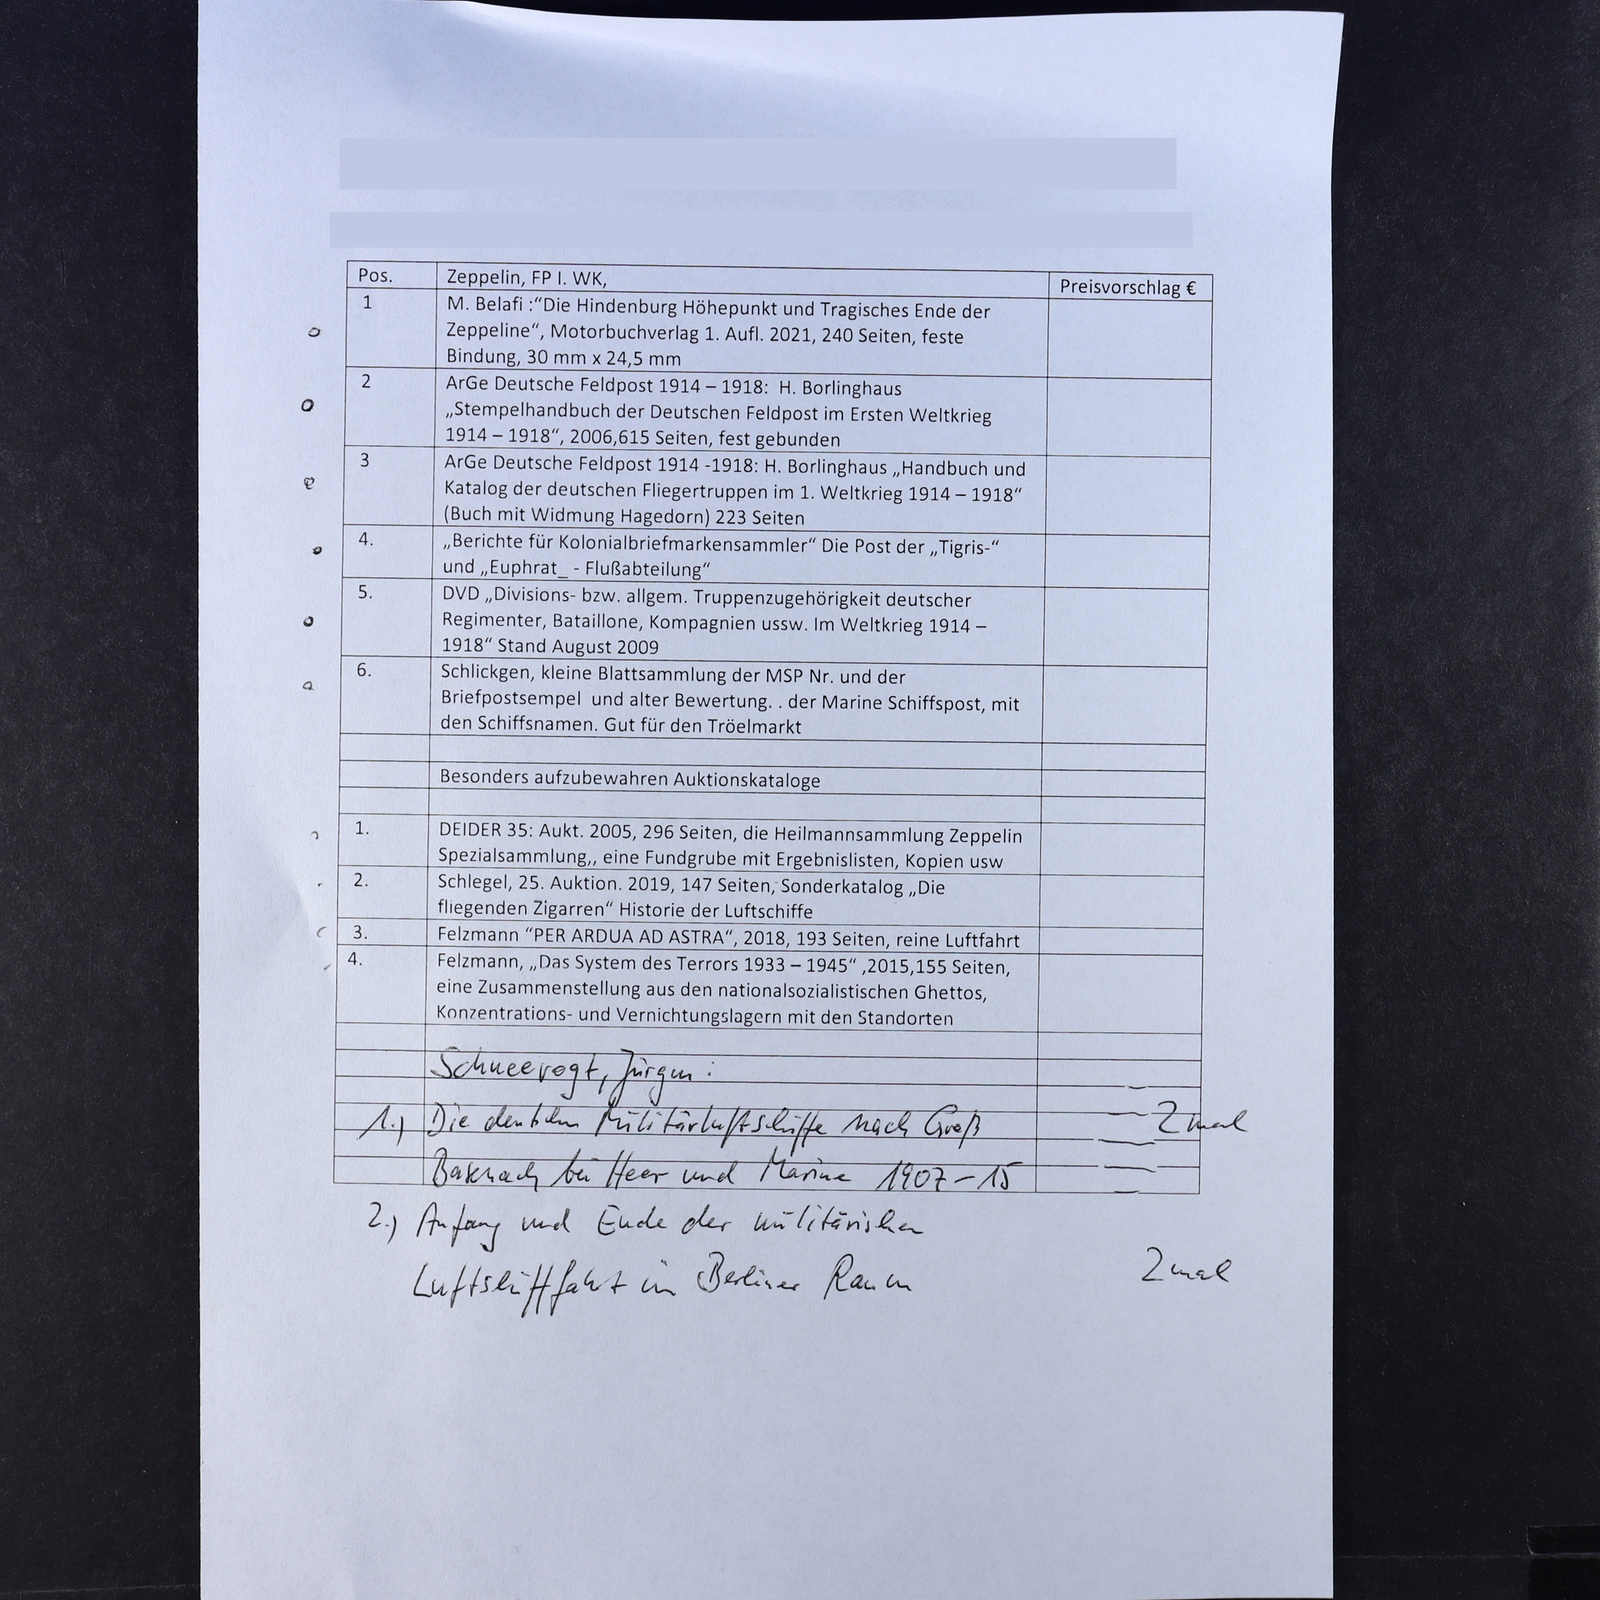 Pos. Zeppelin, FP I. WK, Preisvorschlag €
1 M. Belafi :“Die Hindenburg Höhepunkt und Tragisches Ende der
Zeppeline“, Motorbuchverlag 1. Aufl. 2021, 240 Seiten, feste
Bindung, 30 mm x 24,5 mm
2 ArGe Deutsche Feldpost 1914 – 1918: H. Borlinghaus
„Stempelhandbuch der Deutschen Feldpost im Ersten Weltkrieg
1914 – 1918“, 2006,615 Seiten, fest gebunden
3 ArGe Deutsche Feldpost 1914 -1918: H. Borlinghaus „Handbuch und
Katalog der deutschen Fliegertruppen im 1. Weltkrieg 1914 – 1918“
(Buch mit Widmung Hagedorn) 223 Seiten
4. „Berichte für Kolonialbriefmarkensammler“ Die Post der „Tigris-“
und „Euphrat_ - Flußabteilung“
5. DVD „Divisions- bzw. allgem. Truppenzugehörigkeit deutscher
Regimenter, Bataillone, Kompagnien ussw. Im Weltkrieg 1914 –
1918“ Stand August 2009
6. Schlickgen, kleine Blattsammlung der MSP Nr. und der
Briefpostsempel und alter Bewertung. . der Marine Schiffspost, mit
den Schiffsnamen. Gut für den Tröelmarkt
Besonders aufzubewahren Auktionskataloge
1. DEIDER 35: Aukt. 2005, 296 Seiten, die Heilmannsammlung Zeppelin
Spezialsammlung,, eine Fundgrube mit Ergebnislisten, Kopien usw
2. Schlegel, 25. Auktion. 2019, 147 Seiten, Sonderkatalog „Die
fliegenden Zigarren“ Historie der Luftschiffe
3. Felzmann “PER ARDUA AD ASTRA“, 2018, 193 Seiten, reine Luftfahrt
4. Felzmann, „Das System des Terrors 1933 – 1945“ ,2015,155 Seiten,
eine Zusammenstellung aus den nationalsozialistischen Ghettos,
Konzentrations- und Vernichtungslagern mit den Standorten
Schneevogt, Jürgen :
1.) Die deutschen Militärluftschiffe nach Groß 2 mal
Basenach bei Heer und Marine 1907 – 15
2.) Anfang und Ende der militärischen
Luftschifffahrt im Berliner Raum 2 mal